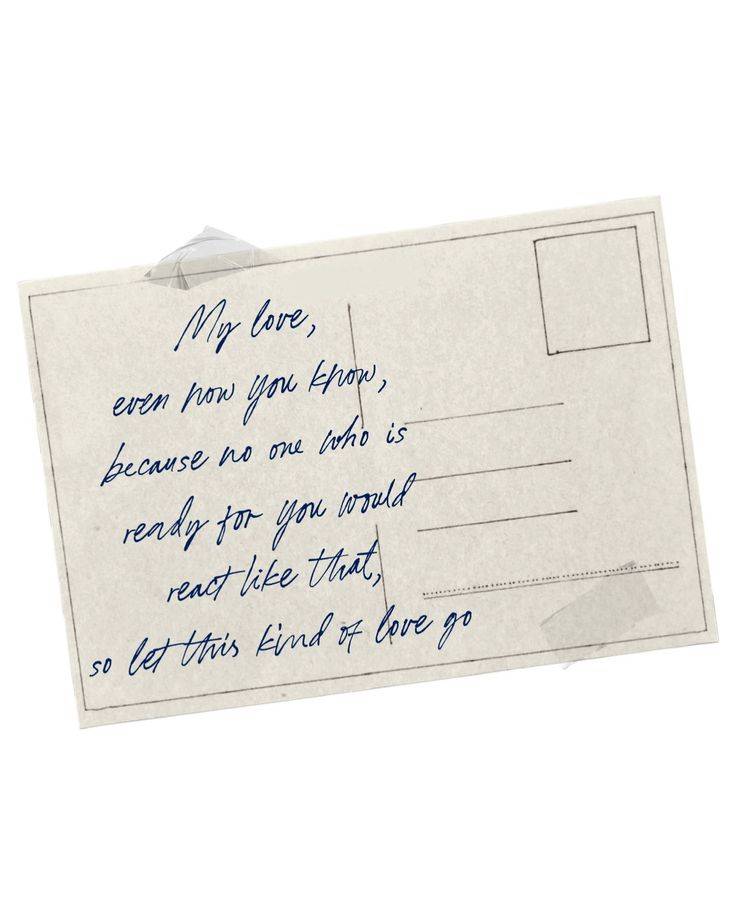 My love,
even now you know,
because no one who is
ready for you would
react like that,
so let this kind of love go